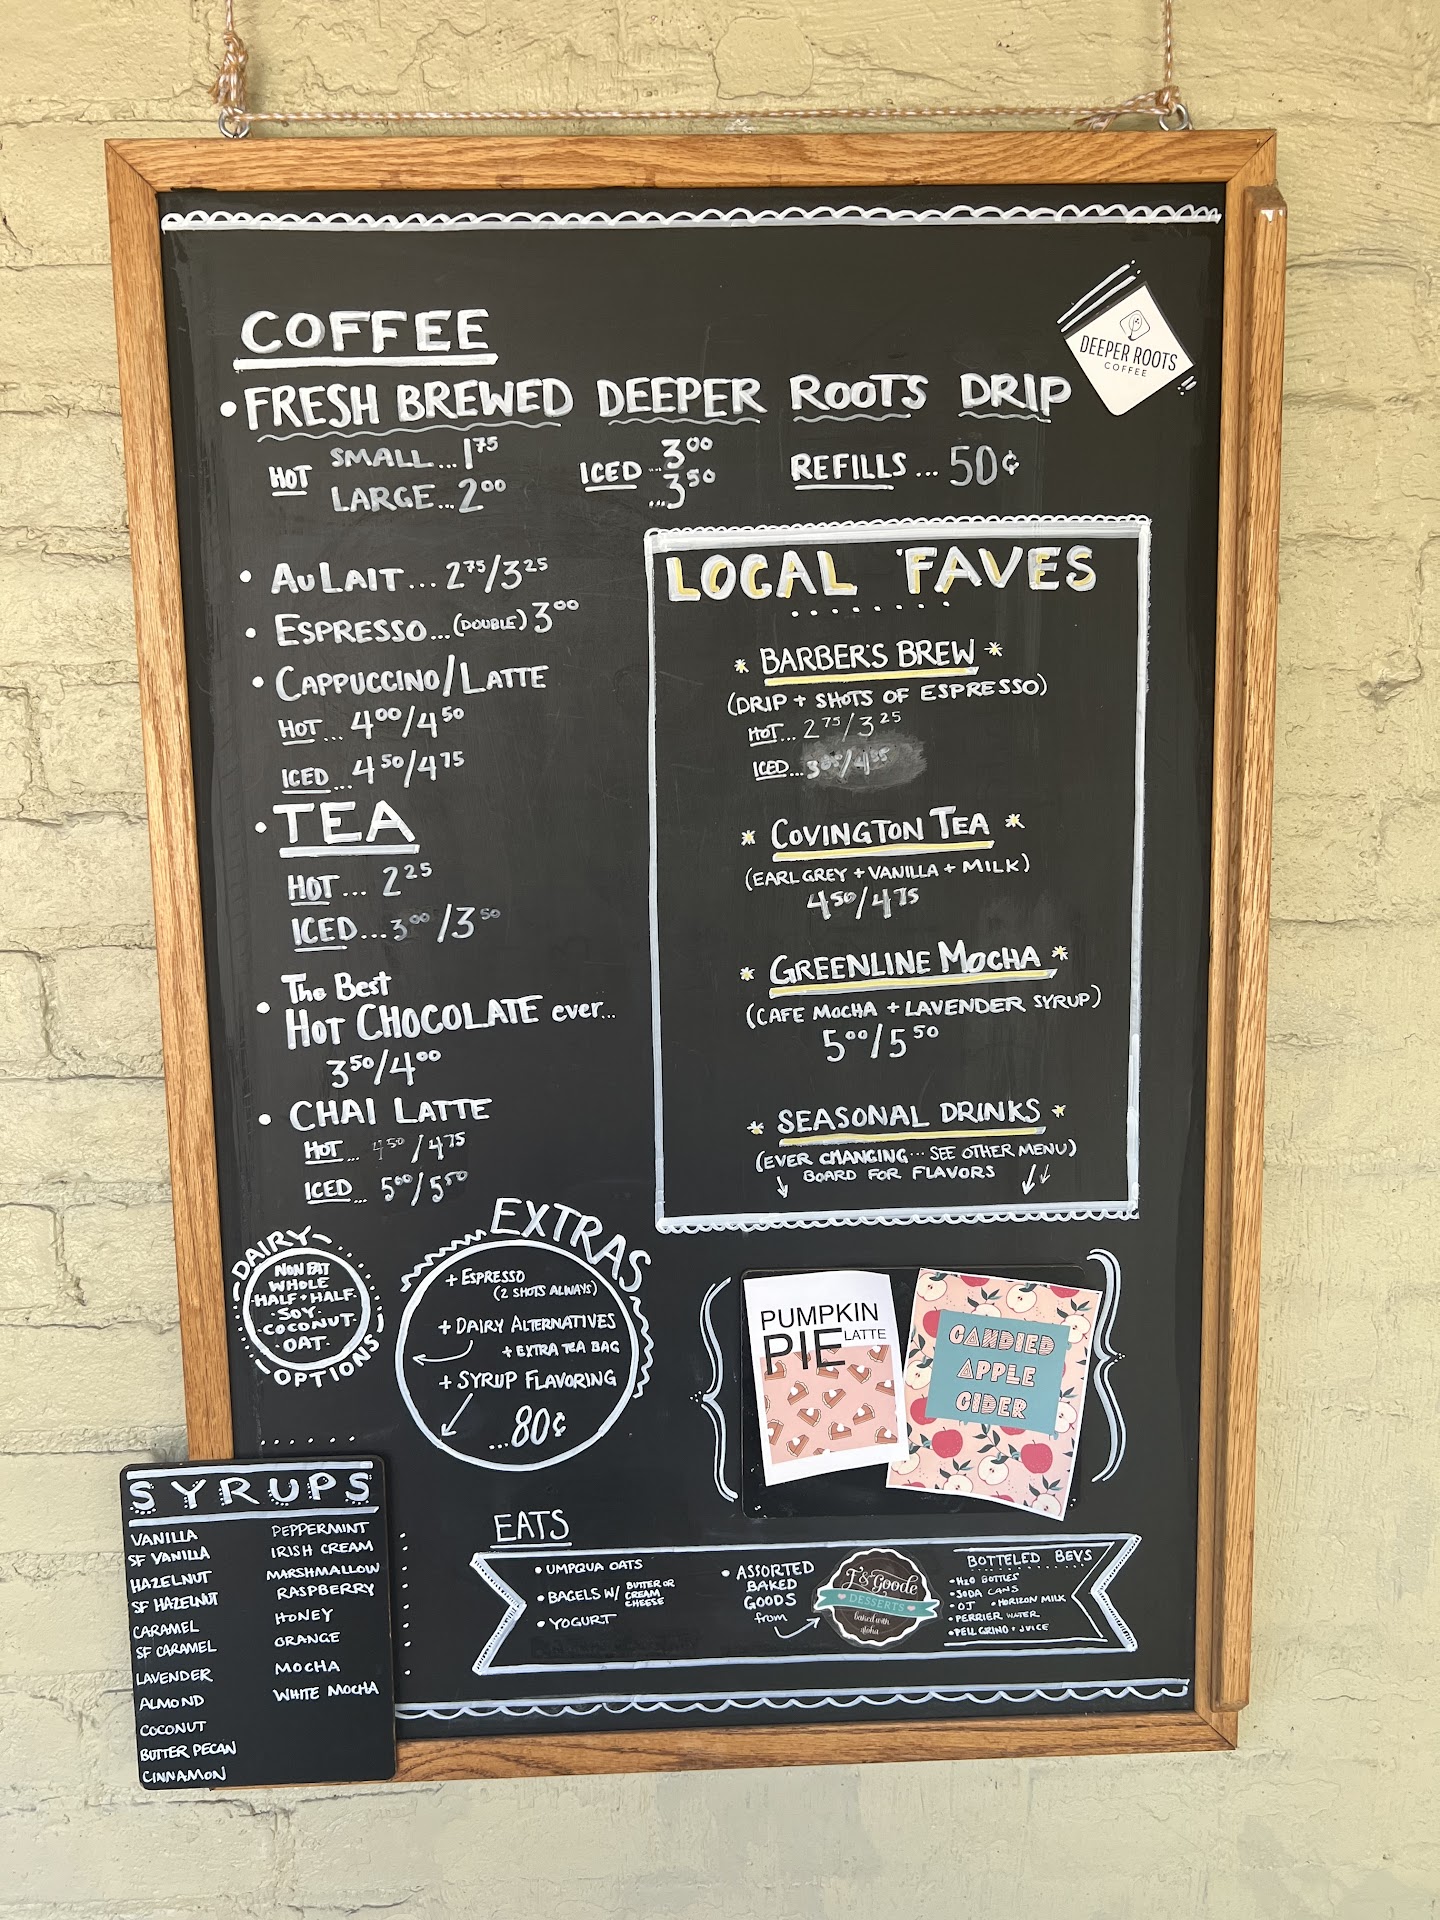 COFFEE
DEEPER ROOTS
COFFEE
• FRESH BREWED DEEPER ROOTS DRIP
HOT SMALL...1 75
LARGE...2 00
ICED ...3 00
...3 50
REFILLS ... 50¢
• AU LAIT ... 2 75/3 25
• ESPRESSO...(DOUBLE) 3 00
• CAPPUCCINO/LATTE
HOT ... 4 00/4 50
ICED ... 4 50/4 75
• TEA
HOT ... 2 25
ICED ...3 00/3 50
• The Best
HOT CHOCOLATE ever...
3 50/4 00
• CHAI LATTE
HOT ... 4 50/4 75
ICED ... 5 00/5 50
LOCAL FAVES
* BARBER'S BREW *
(DRIP + SHOTS OF ESPRESSO)
HOT... 2 75/3 25
ICED...
* COVINGTON TEA *
(EARL GREY + VANILLA + MILK)
4 50/4 75
* GREENLINE MOCHA *
(CAFE MOCHA + LAVENDER SYRUP)
5 00/5 50
* SEASONAL DRINKS *
(EVER CHANGING... SEE OTHER MENU)
BOARD FOR FLAVORS
DAIRY
NON FAT
WHOLE
HALF + HALF
·SOY·
·COCONUT·
·OAT·
OPTIONS
EXTRAS
+ ESPRESSO
(2 SHOTS ALWAYS)
+ DAIRY ALTERNATIVES
+ EXTRA TEA BAG
+ SYRUP FLAVORING
...80¢
PUMPKIN
PIE LATTE
CANDIED
APPLE
CIDER
SYRUPS
VANILLA
SF VANILLA
HAZELNUT
SF HAZELNUT
CARAMEL
SF CARAMEL
LAVENDER
ALMOND
COCONUT
BUTTER PECAN
CINNAMON
PEPPERMINT
IRISH CREAM
MARSHMALLOW
RASPBERRY
HONEY
ORANGE
MOCHA
WHITE MOCHA
EATS
• UMPQUA OATS
• BAGELS W/ BUTTER OR
CREAM
CHEESE
• YOGURT
• ASSORTED
BAKED
GOODS
from
J's Goode
DESSERTS
baked with
aloha
BOTTELED BEVS
• H2O BOTTLES
• SODA CANS
• OJ • HORIZON MILK
• PERRIER WATER
• PELLGRINO • JUICE